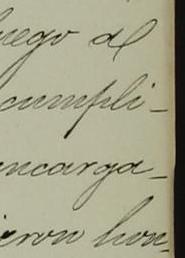 uego al
cumpli-
encarga-
ieron hon-